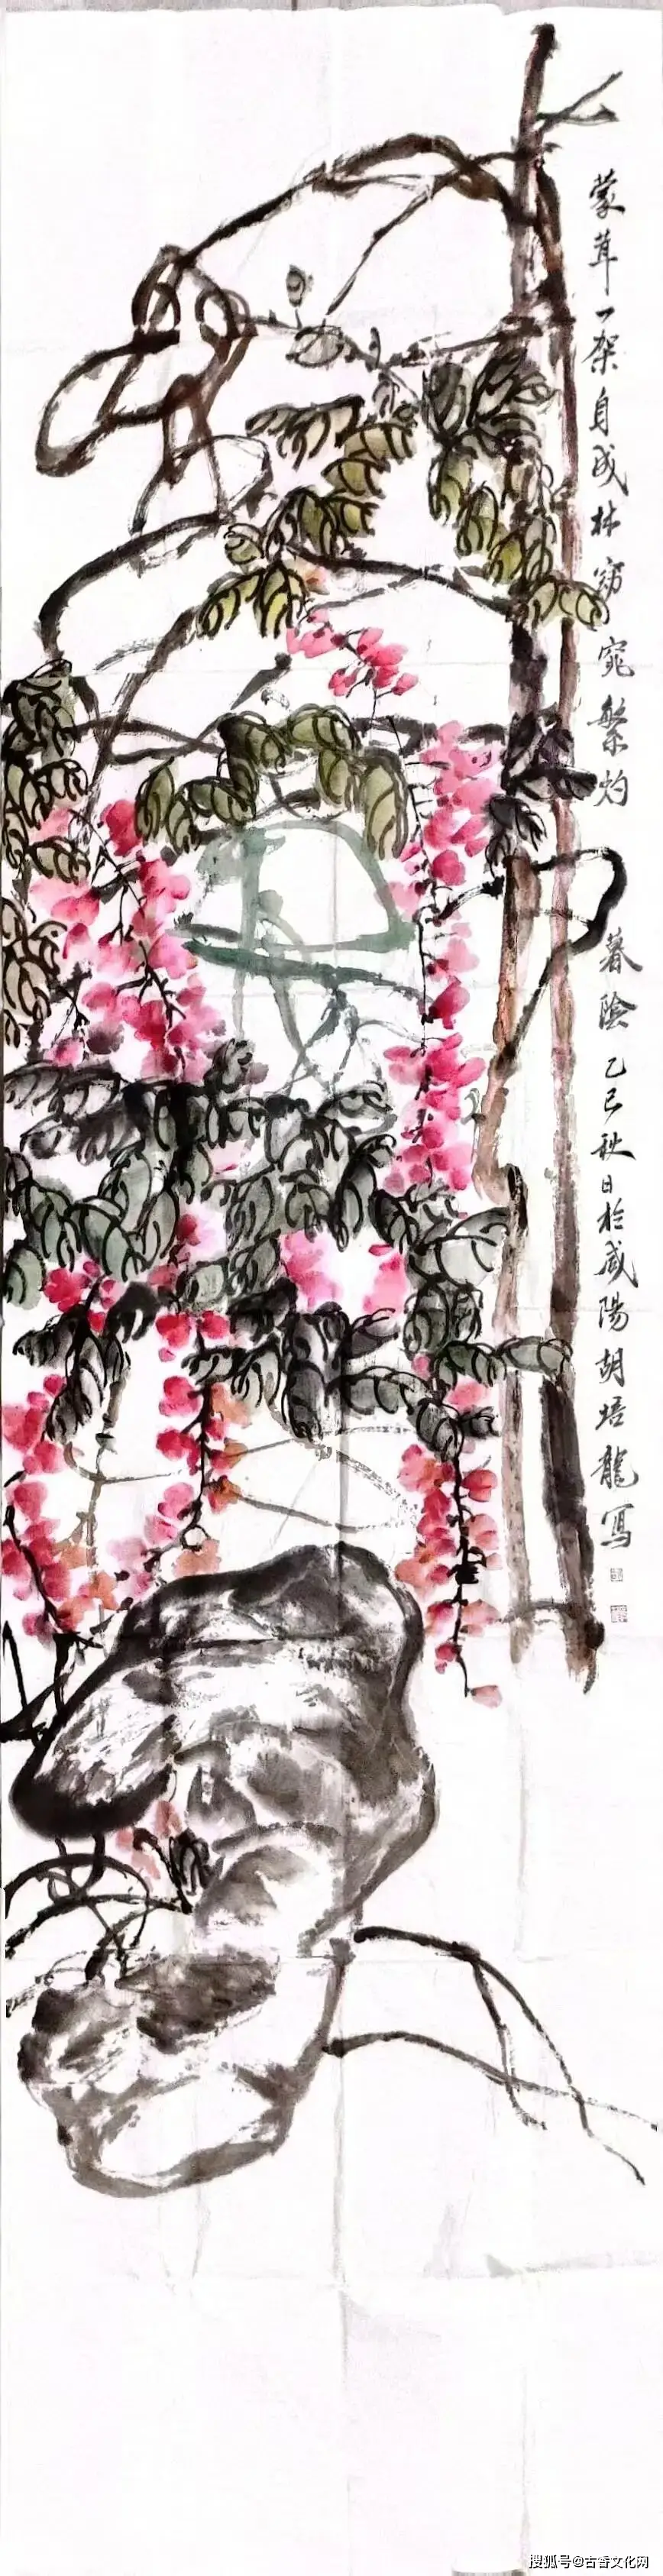 蒙茸一架自成林窈窕繁灼
暮陰乙巳秋日於咸陽胡培龍寫
搜狐号@古香文化网